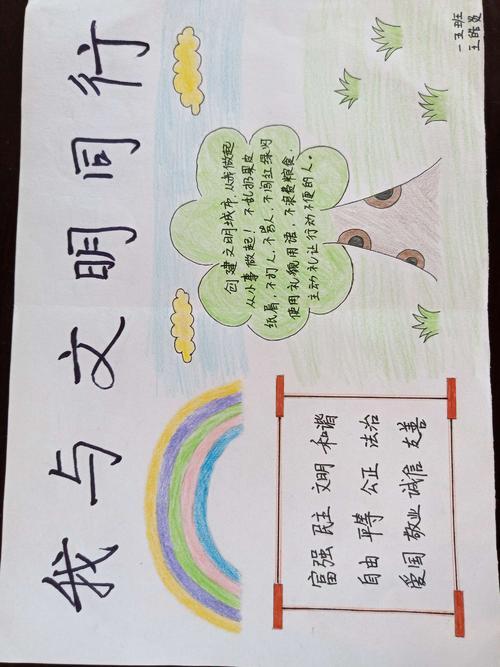 我与文明同行
富强 民主 文明 和谐
自由 平等 公正 法治
爱国 敬业 诚信 友善
创建文明城市,从我做起
从小事做起!不乱扔果皮
纸屑,不打人,不骂人,不闯红绿灯
使用礼貌用语,不浪费粮食,
主动礼让行动不便的人。
一五班